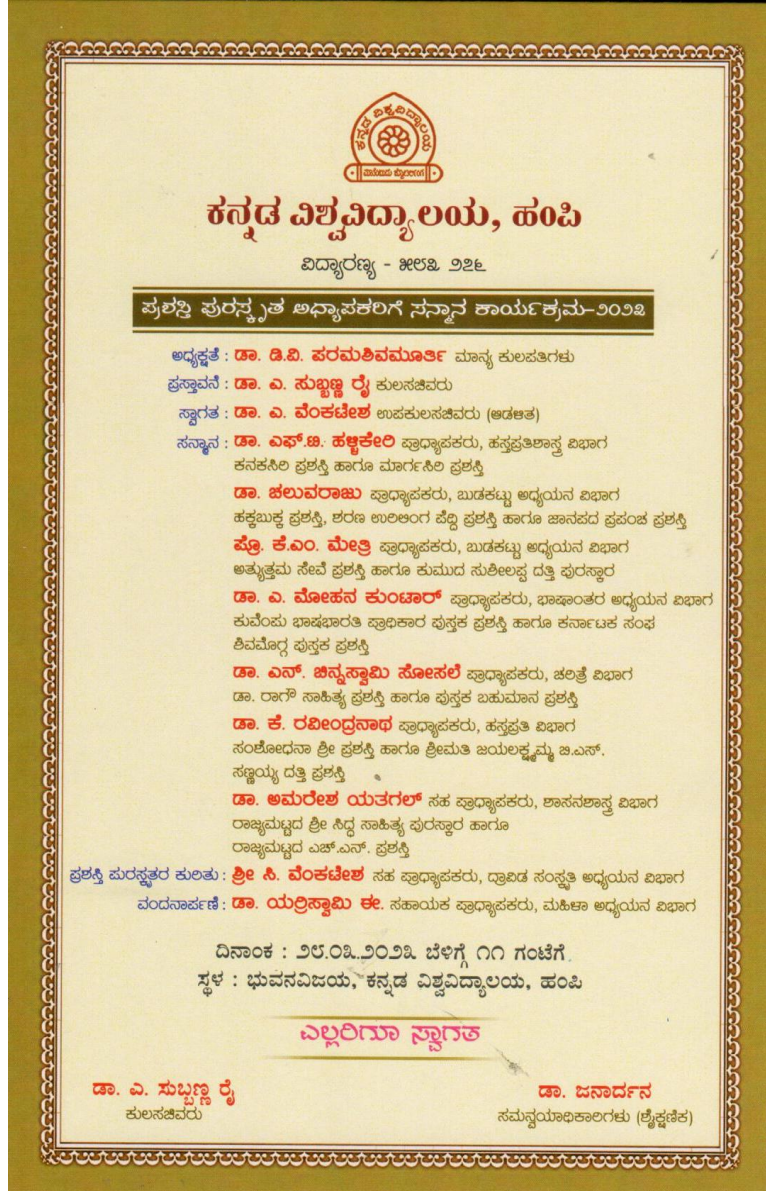 ಕನ್ನಡ ವಿಶ್ವವಿದ್ಯಾಲಯ
ಕನ್ನಡ ವಿಶ್ವವಿದ್ಯಾಲಯ, ಹಂಪಿ
ವಿದ್ಯಾರಣ್ಯ - ೫೮೩ ೨೭೬
ಪ್ರಶಸ್ತಿ ಪುರಸ್ಕೃತ ಅಧ್ಯಾಪಕರಿಗೆ ಸನ್ಮಾನ ಕಾರ್ಯಕ್ರಮ-೨೦೨೩
ಅಧ್ಯಕ್ಷತೆ : ಡಾ. ಡಿ.ವಿ. ಪರಮಶಿವಮೂರ್ತಿ ಮಾನ್ಯ ಕುಲಪತಿಗಳು
ಪ್ರಸ್ತಾವನೆ : ಡಾ. ಎ. ಸುಬ್ಬಣ್ಣ ರೈ ಕುಲಸಚಿವರು
ಸ್ವಾಗತ : ಡಾ. ಎ. ವೆಂಕಟೇಶ ಉಪಕುಲಸಚಿವರು (ಆಡಳಿತ)
ಸನ್ಮಾನ : ಡಾ. ಎಫ್.ಟಿ. ಹಳ್ಳಿಕೇರಿ ಪ್ರಾಧ್ಯಾಪಕರು, ಹಸ್ತಪ್ರತಿಶಾಸ್ತ್ರ ವಿಭಾಗ
ಕನಕಸಿರಿ ಪ್ರಶಸ್ತಿ ಹಾಗೂ ಮಾರ್ಗಸಿರಿ ಪ್ರಶಸ್ತಿ
ಡಾ. ಚಲುವರಾಜು ಪ್ರಾಧ್ಯಾಪಕರು, ಬುಡಕಟ್ಟು ಅಧ್ಯಯನ ವಿಭಾಗ
ಹಕ್ಕಬುಕ್ಕ ಪ್ರಶಸ್ತಿ, ಶರಣ ಉರಿಲಿಂಗ ಪೆದ್ದಿ ಪ್ರಶಸ್ತಿ ಹಾಗೂ ಜಾನಪದ ಪ್ರಪಂಚ ಪ್ರಶಸ್ತಿ
ಪ್ರೊ. ಕೆ.ಎಂ. ಮೇತ್ರಿ ಪ್ರಾಧ್ಯಾಪಕರು, ಬುಡಕಟ್ಟು ಅಧ್ಯಯನ ವಿಭಾಗ
ಅತ್ಯುತ್ತಮ ಸೇವೆ ಪ್ರಶಸ್ತಿ ಹಾಗೂ ಕುಮುದ ಸುಶೀಲಪ್ಪ ದತ್ತಿ ಪುರಸ್ಕಾರ
ಡಾ. ಎ. ಮೋಹನ ಕುಂಟಾರ್ ಪ್ರಾಧ್ಯಾಪಕರು, ಭಾಷಾಂತರ ಅಧ್ಯಯನ ವಿಭಾಗ
ಕುವೆಂಪು ಭಾಷಭಾರತಿ ಪ್ರಾಧಿಕಾರ ಪುಸ್ತಕ ಪ್ರಶಸ್ತಿ ಹಾಗೂ ಕರ್ನಾಟಕ ಸಂಘ
ಶಿವಮೊಗ್ಗ ಪುಸ್ತಕ ಪ್ರಶಸ್ತಿ
ಡಾ. ಎನ್. ಚಿನ್ನಸ್ವಾಮಿ ಸೋಸಲೆ ಪ್ರಾಧ್ಯಾಪಕರು, ಚರಿತ್ರೆ ವಿಭಾಗ
ಡಾ. ರಾಗೌ ಸಾಹಿತ್ಯ ಪ್ರಶಸ್ತಿ ಹಾಗೂ ಪುಸ್ತಕ ಬಹುಮಾನ ಪ್ರಶಸ್ತಿ
ಡಾ. ಕೆ. ರವೀಂದ್ರನಾಥ ಪ್ರಾಧ್ಯಾಪಕರು, ಹಸ್ತಪ್ರತಿ ವಿಭಾಗ
ಸಂಶೋಧನಾ ಶ್ರೀ ಪ್ರಶಸ್ತಿ ಹಾಗೂ ಶ್ರೀಮತಿ ಜಯಲಕ್ಷ್ಮಮ್ಮ ಬಿ.ಎಸ್.
ಸಣ್ಣಯ್ಯ ದತ್ತಿ ಪ್ರಶಸ್ತಿ
ಡಾ. ಅಮರೇಶ ಯತಗಲ್ ಸಹ ಪ್ರಾಧ್ಯಾಪಕರು, ಶಾಸನಶಾಸ್ತ್ರ ವಿಭಾಗ
ರಾಜ್ಯಮಟ್ಟದ ಶ್ರೀ ಸಿದ್ಧ ಸಾಹಿತ್ಯ ಪುರಸ್ಕಾರ ಹಾಗೂ
ರಾಜ್ಯಮಟ್ಟದ ಎಚ್.ಎನ್. ಪ್ರಶಸ್ತಿ
ಪ್ರಶಸ್ತಿ ಪುರಸ್ಕೃತರ ಕುರಿತು : ಶ್ರೀ ಸಿ. ವೆಂಕಟೇಶ ಸಹ ಪ್ರಾಧ್ಯಾಪಕರು, ದ್ರಾವಿಡ ಸಂಸ್ಕೃತಿ ಅಧ್ಯಯನ ವಿಭಾಗ
ವಂದನಾರ್ಪಣೆ : ಡಾ. ಯರ್ರಿಸ್ವಾಮಿ ಈ. ಸಹಾಯಕ ಪ್ರಾಧ್ಯಾಪಕರು, ಮಹಿಳಾ ಅಧ್ಯಯನ ವಿಭಾಗ
ದಿನಾಂಕ : ೨೮.೦೩.೨೦೨೩ ಬೆಳಿಗ್ಗೆ ೧೧ ಗಂಟೆಗೆ
ಸ್ಥಳ : ಭುವನವಿಜಯ, ಕನ್ನಡ ವಿಶ್ವವಿದ್ಯಾಲಯ, ಹಂಪಿ
ಎಲ್ಲರಿಗೂ ಸ್ವಾಗತ
ಡಾ. ಎ. ಸುಬ್ಬಣ್ಣ ರೈ
ಕುಲಸಚಿವರು
ಡಾ. ಜನಾರ್ದನ
ಸಮನ್ವಯಾಧಿಕಾರಿಗಳು (ಶೈಕ್ಷಣಿಕ)